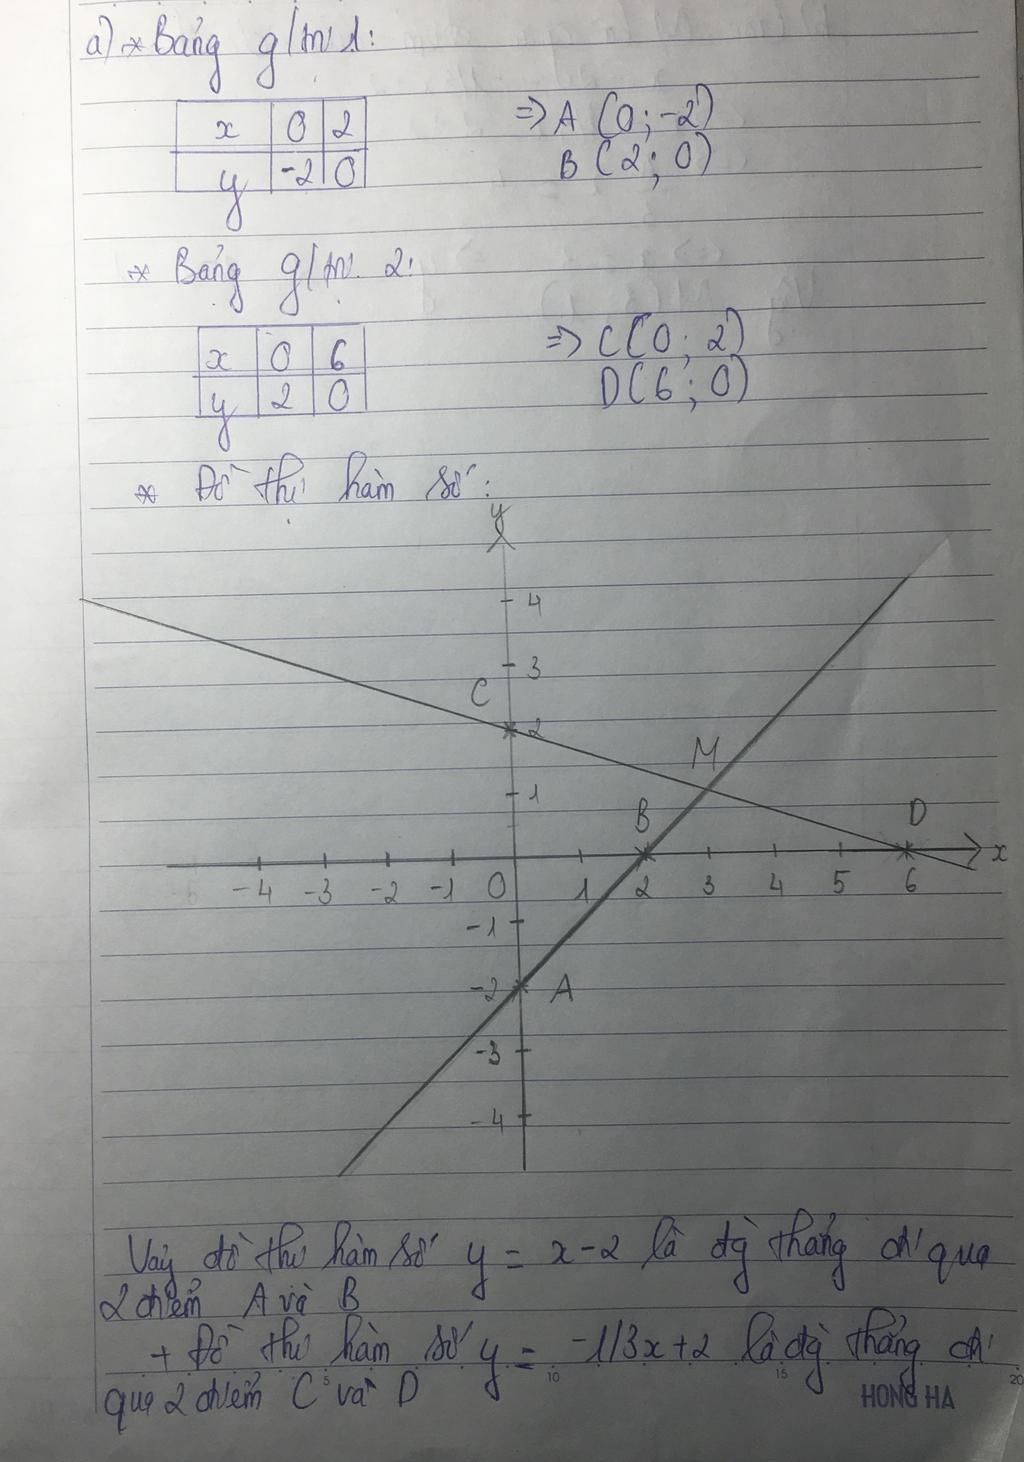 a) * Bảng g/trị 1:
x 0 2 => A (0; -2)
y -2 0 B (2; 0)
* Bảng g/trị 2:
x 0 6 => C (0; 2)
y 2 0 D (6; 0)
* Đồ thị hàm số:
y
4
3
C
2
M
1
B D
x
-4 -3 -2 -1 0 1 2 3 4 5 6
-1
-2 A
-3
-4
Vậy đồ thị hàm số y = x-2 là đg thẳng đi qua
2 điểm A và B
+ Đồ thị hàm số y = -1/3x+2 là đg thẳng đi
qua 2 điểm C và D
5 10 15 20
HONG HA